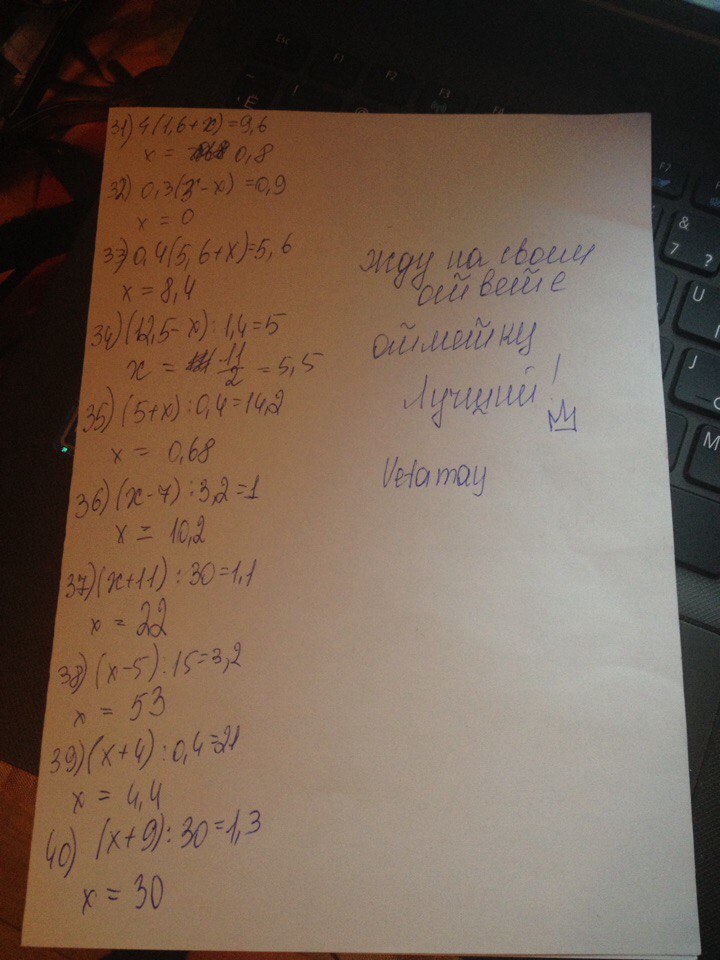 31) 4(1,6+x)=9,6
x = 0,8
32) 0,3(3-x)=0,9
x = 0
33) 0,4(5,6+x)=5,6
x = 8,4
34) (12,5-x):1,4=5
x = 11/2 = 5,5
35) (5+x):0,4=14,2
x = 0,68
36) (x-7):3,2=1
x = 10,2
37) (x+11):30=1,1
x = 22
38) (x-5):15=3,2
x = 53
39) (x+4):0,4=21
x = 4,4
40) (x+9):30=1,3
x = 30
жду на своим
ответе
отметку
Лучший!
Vetamay
Esc
F1
F2
F3
F7
&
7 ?
U
J
M